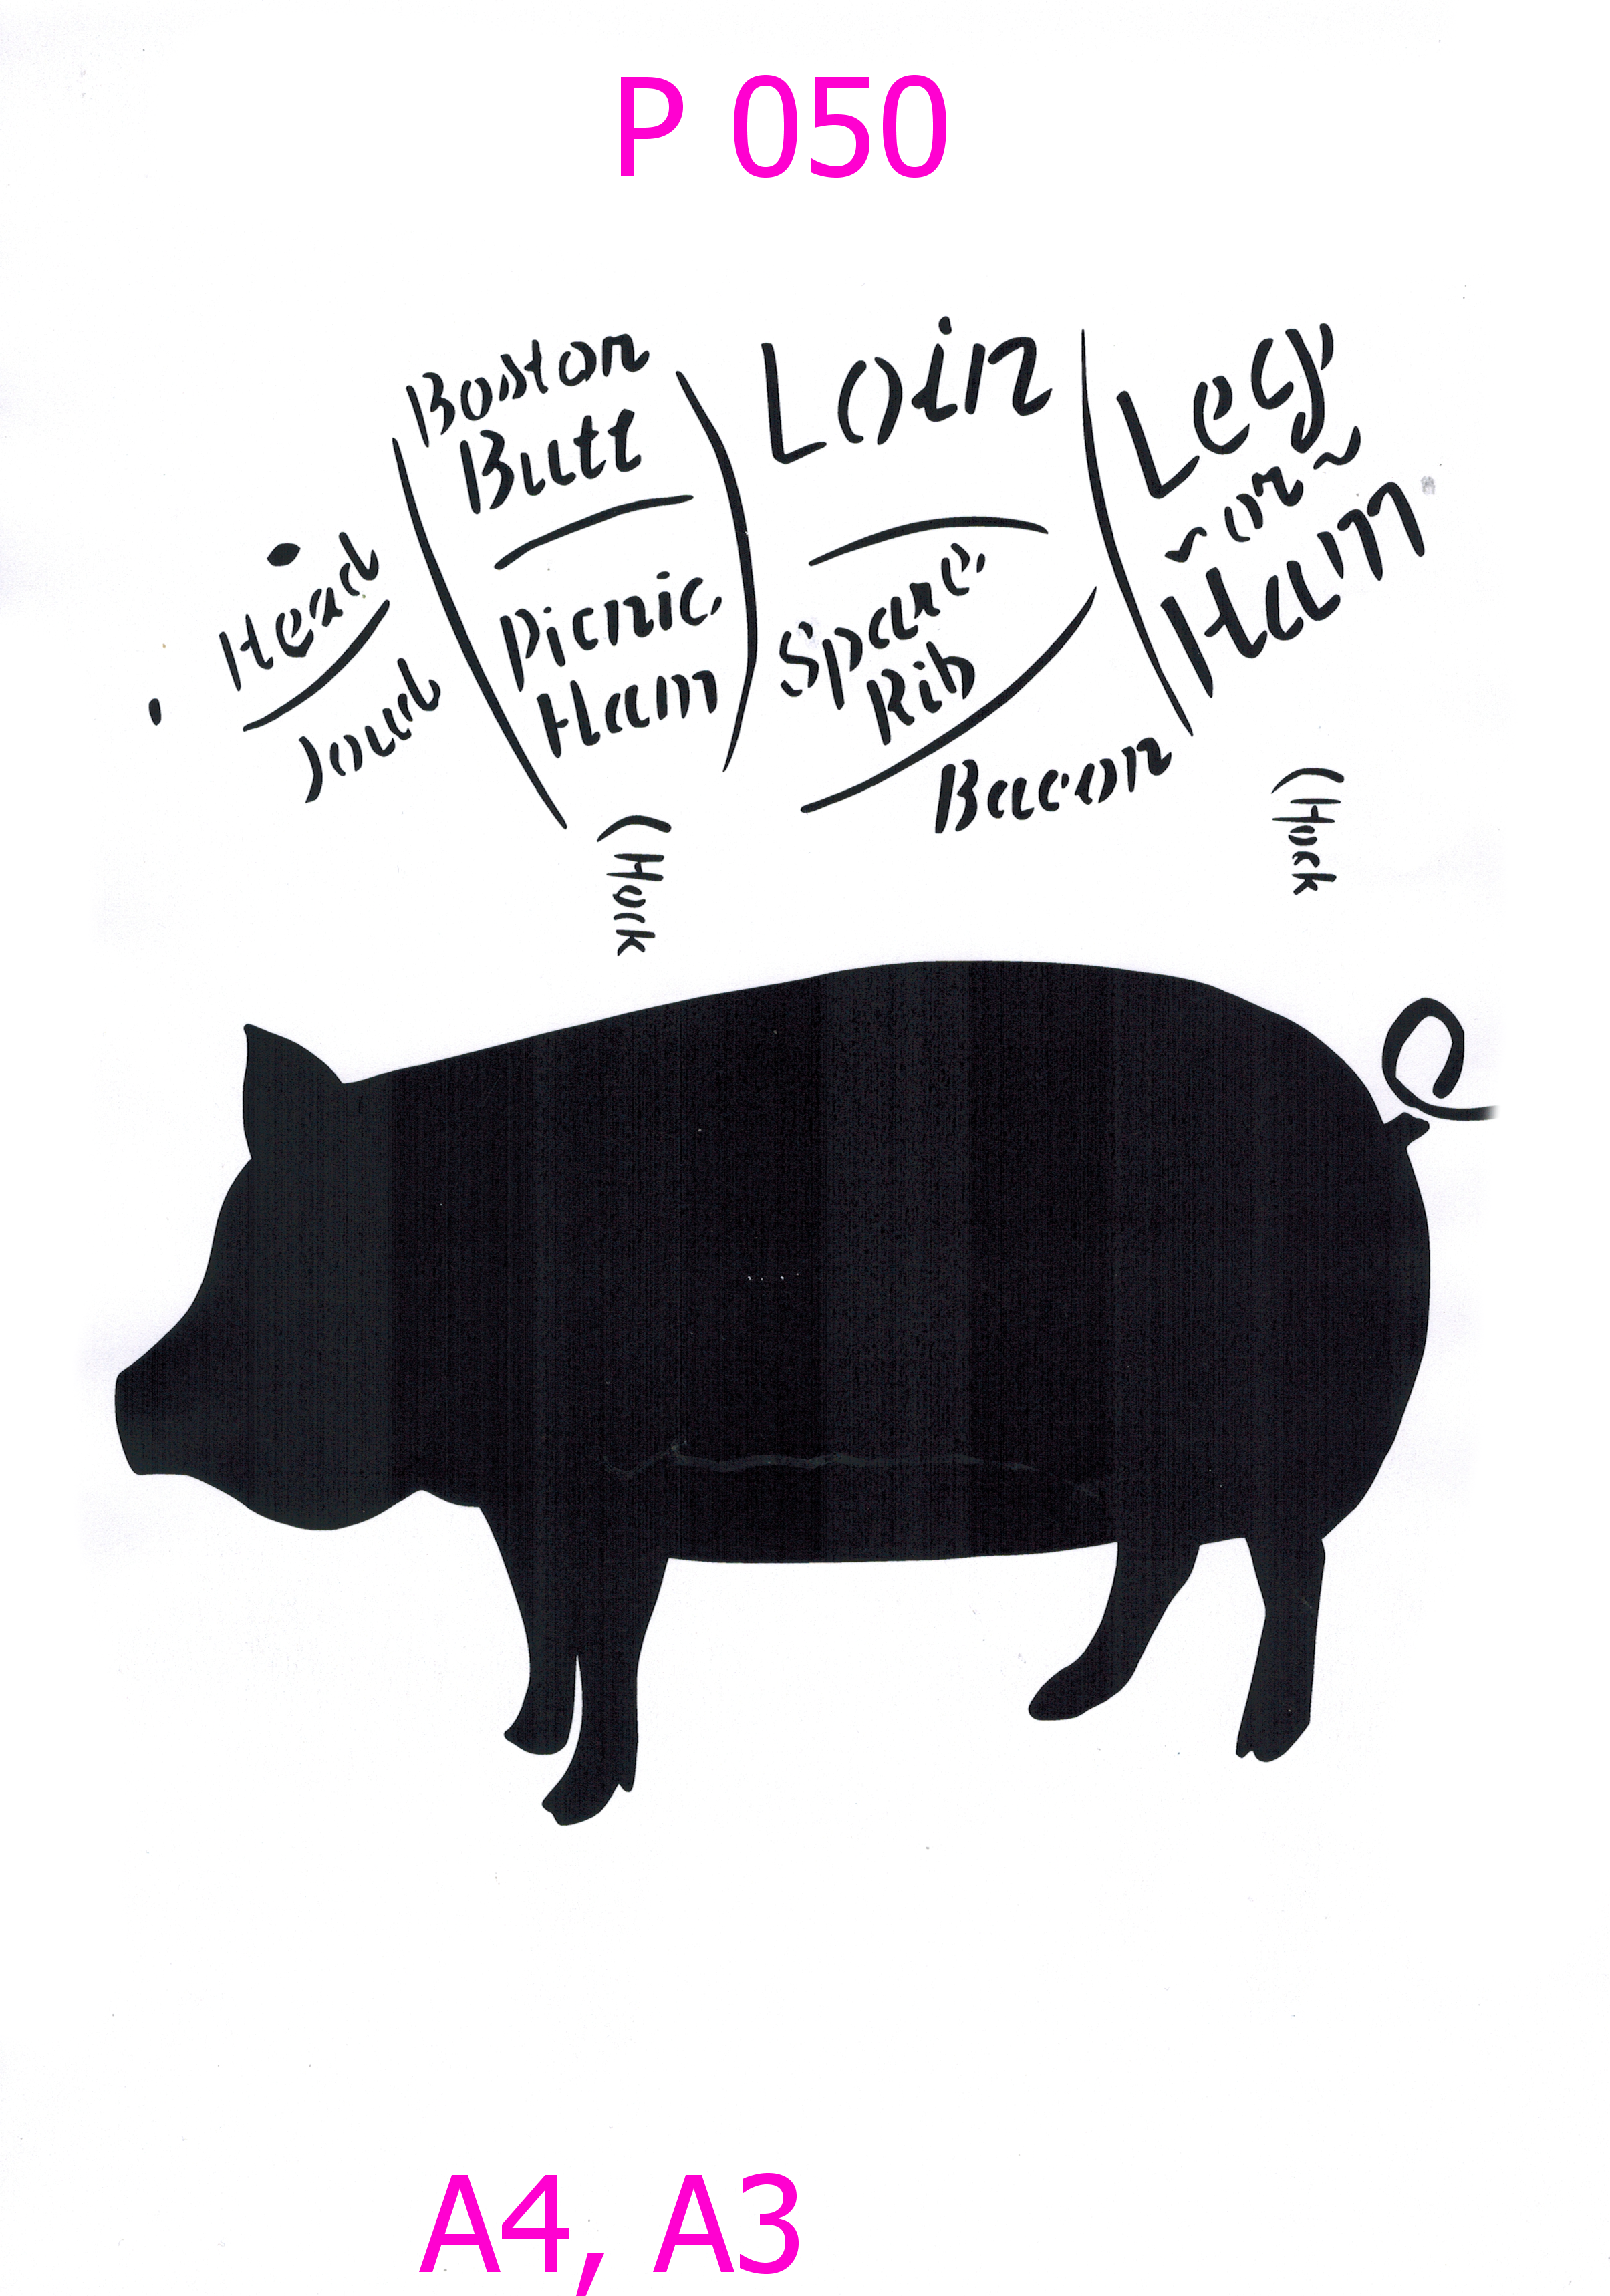 P 050
Boston
Butt
Loin
Leg
~ or ~
Ham
Head
Joud
Picnic
Ham
Spare
Rib
Bacon
Hock
Hock
A4, A3